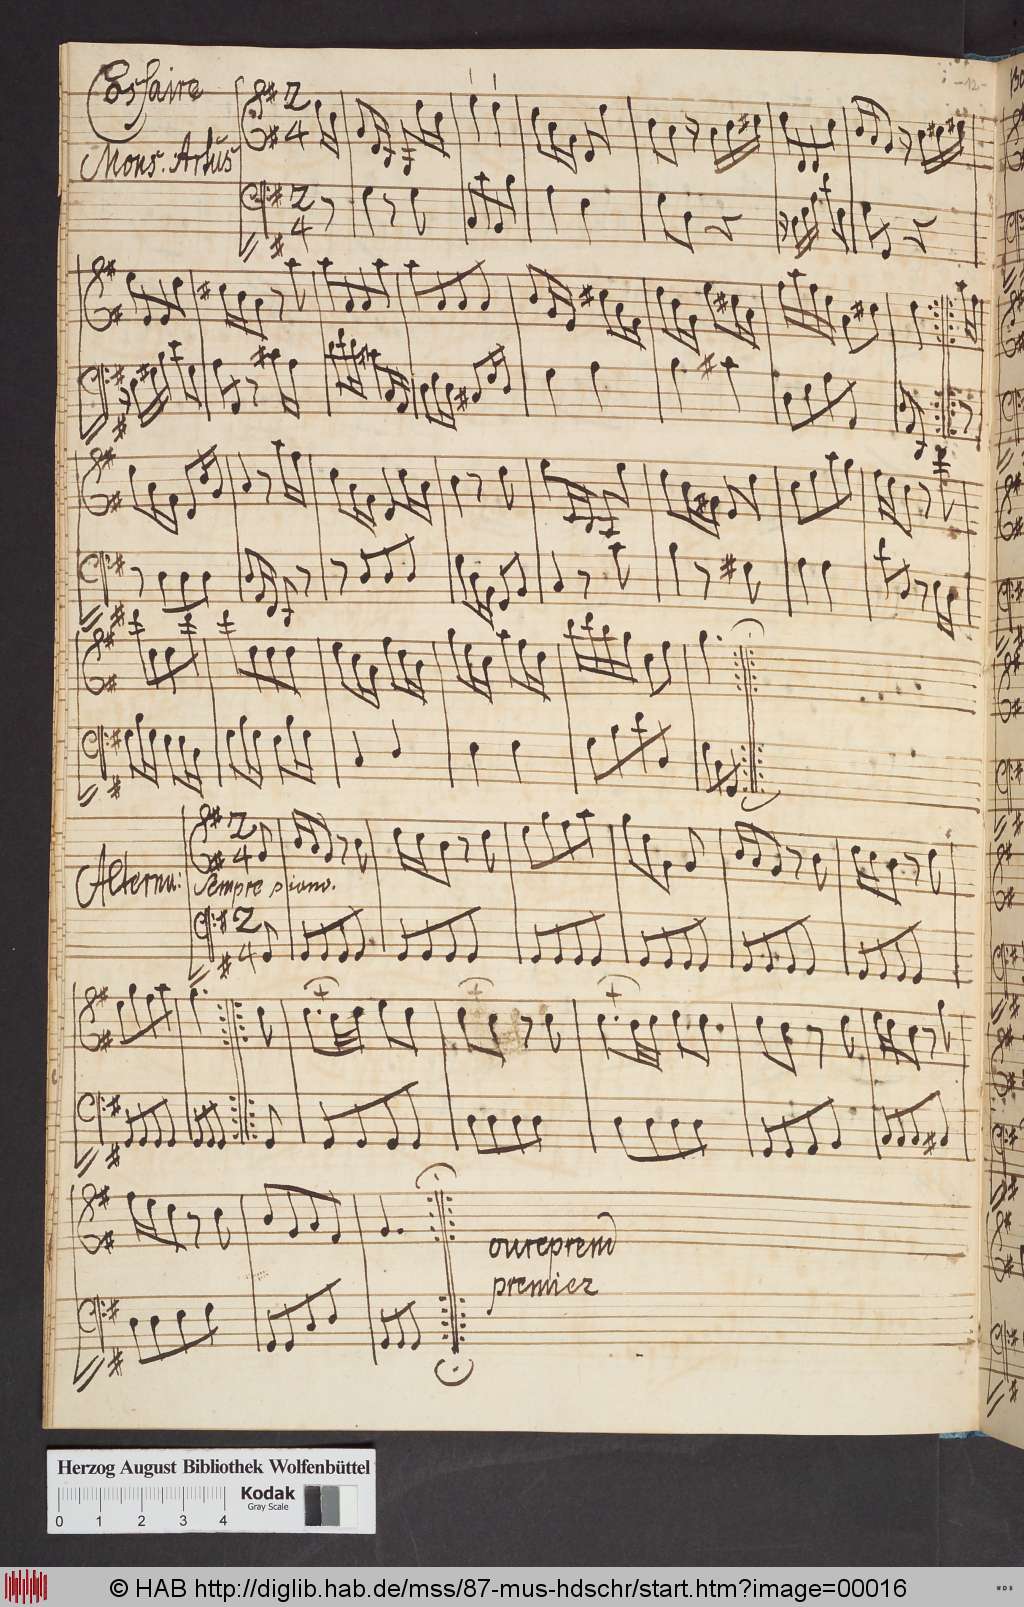 Cosaire
Mons. Artus
-12-
2
4
2
4
Alternu:
2
4
Sempre piano.
2
4
oureprend
premier
Herzog August Bibliothek Wolfenbüttel
0 1 2 3 4
Kodak
Gray Scale
© HAB http://diglib.hab.de/mss/87-mus-hdschr/start.htm?image=00016